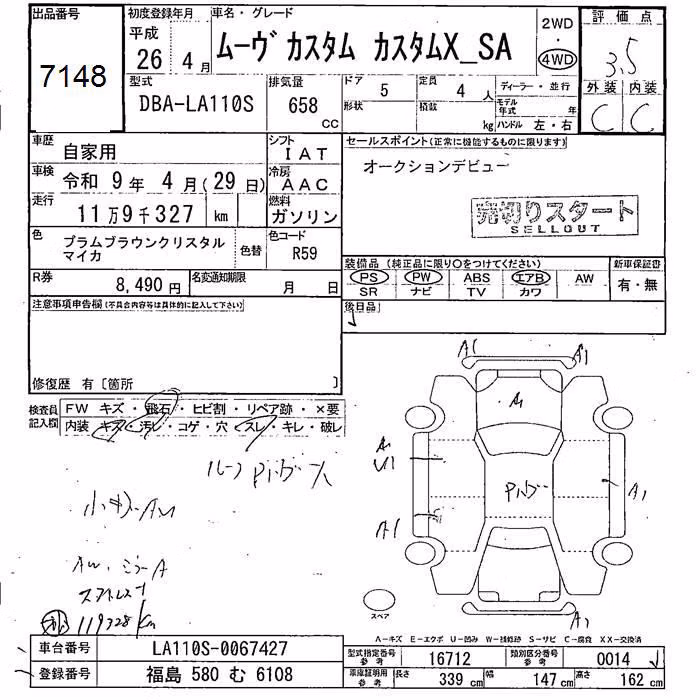 出品番号
7148
初度登録年月
平成
26 4 月
車名・グレード
ムーヴ カスタム カスタムX_SA
2WD
・
4WD
評価点
3.5
外装 内装
C C
型式
DBA-LA110S
排気量
658
CC
ドア 5
形状
定員 4 人
積数 kg
ディーラー・並行
モデル年式 年
ハンドル 左・右
車歴 自家用
シフト IAT
車検 令和 9年 4月(29日)
冷房 AAC
走行 11万9千327 km
燃料 ガソリン
色 プラムブラウンクリスタル
マイカ
色替
色コード R59
R券 8,490 円
名変通知期限 月 日
セールスポイント(正常に機能するものに限ります)
オークションデビュー
売切りスタート
SELLOUT
装備品 (純正品に限り〇をつけてください)
新車保証書
PS PW ABS エアB AW
SR ナビ TV カワ
有・無
後日品
注意事項申告欄(不具合内容等は具体的に記入して下さい)
修復歴 有〔箇所 〕
検査員記入欄
FW キズ・飛石・ヒビ割・リペア跡・×要
内装 キズ・汚レ・コゲ・穴・スレ・キレ・破レ
A1 A1
A1
A1
U1
A1
A1
A1
スペア
119328 km
A-キズ E-エクボ U-凹み W-補修跡 S-サビ C-腐食 XX-交換済
車台番号 LA110S-0067427
登録番号 福島 580 む 6108
型式指定番号参考 16712
類別区分番号参考 0014
車庫証明用参考
長さ 339 cm
幅 147 cm
高さ 162 cm